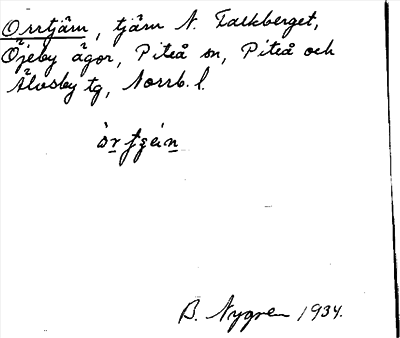 Orrtjärn, tjärn N. Falkberget,
Öjeby ägor, Piteå sn, Piteå och
Älvsby tg, Norrb. l.
B. Nygren 1934.